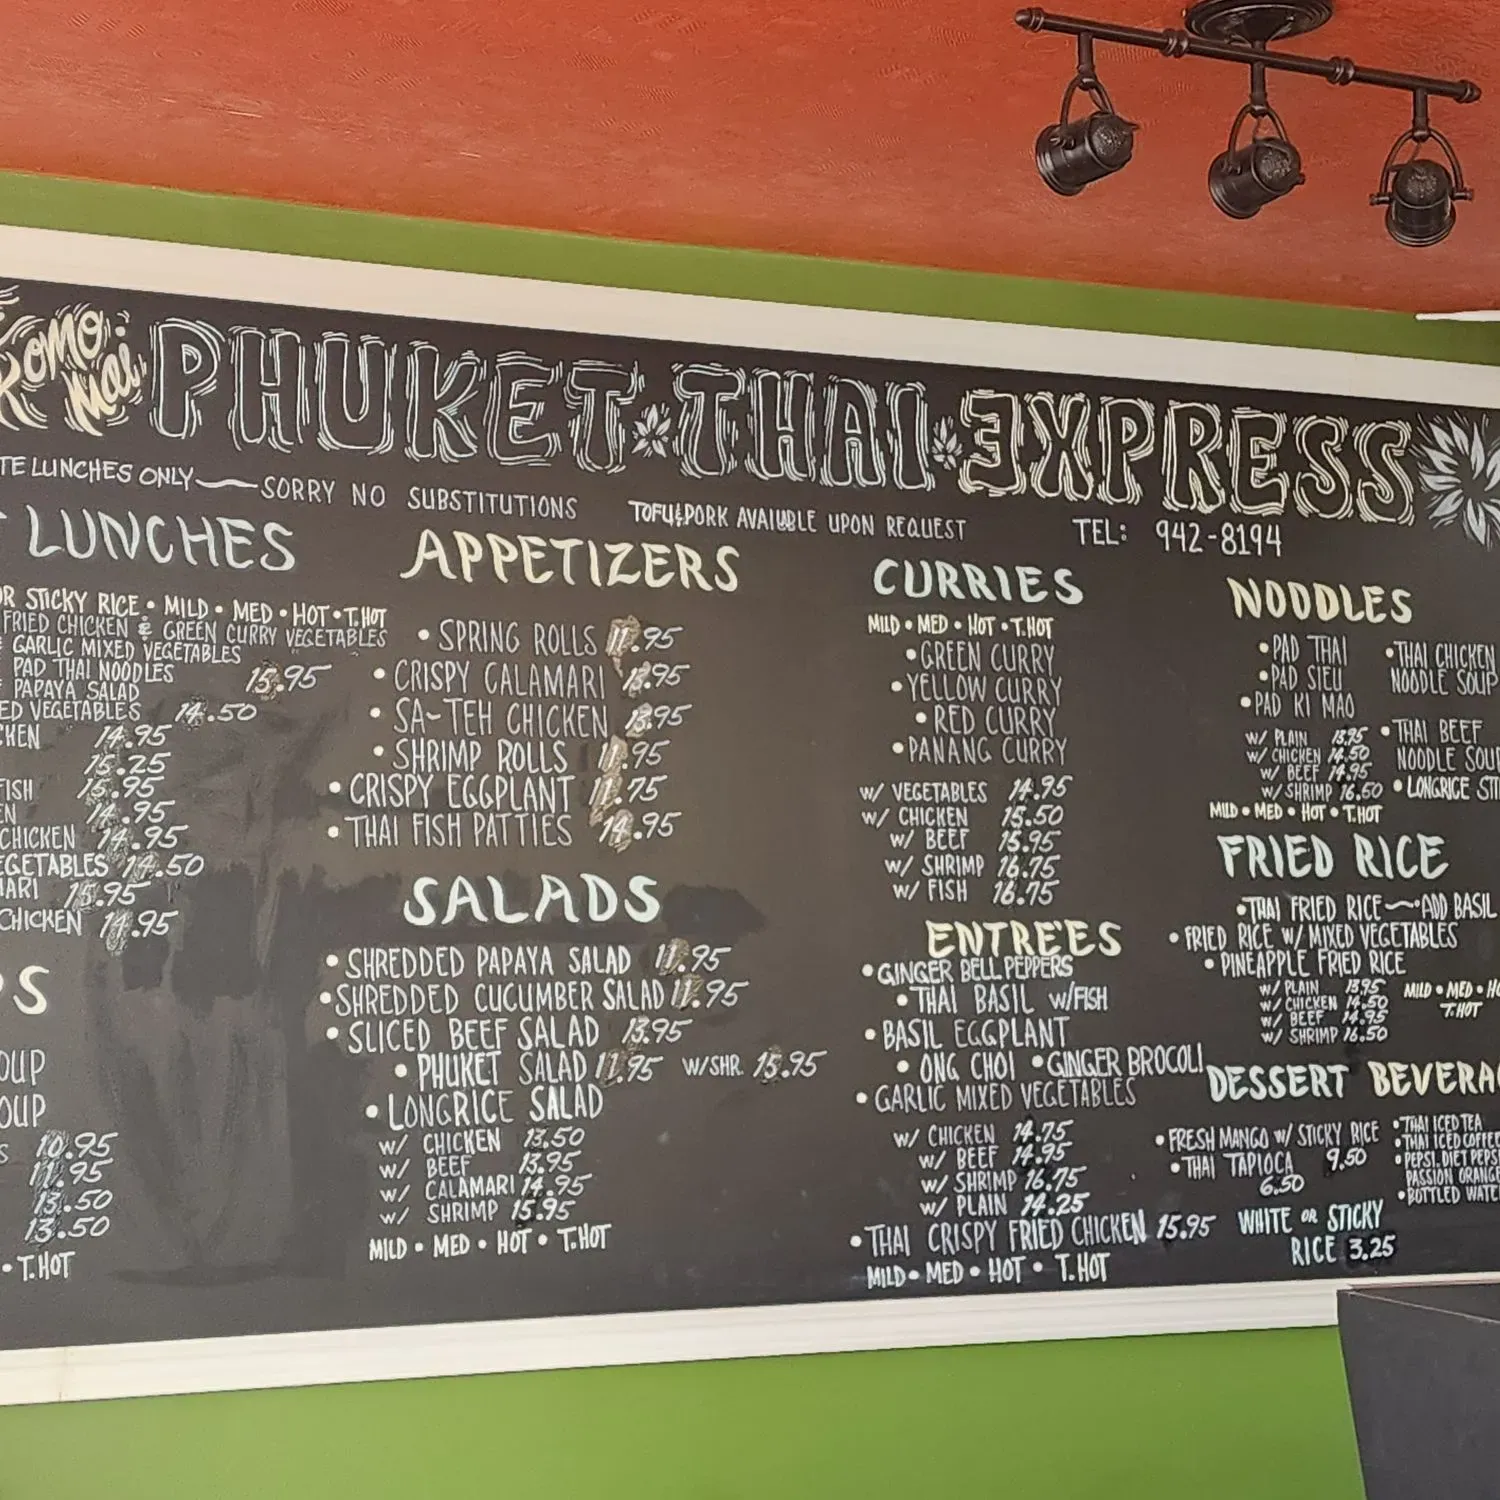 KOMO MAI
PHUKET THAI EXPRESS
LUNCHES ONLY — SORRY NO SUBSTITUTIONS
TOFU & PORK AVAILABLE UPON REQUEST
TEL: 942-8194
LUNCHES
STICKY RICE • MILD • MED • HOT • T.HOT
FRIED CHICKEN & GREEN CURRY VEGETABLES
GARLIC MIXED VEGETABLES
PAD THAI NOODLES
PAPAYA SALAD 15.95
VEGETABLES 14.50
14.95
15.25
FISH 15.95
14.95
CHICKEN 14.95
VEGETABLES 14.50
15.95
CHICKEN 14.95
10.95
11.95
13.50
13.50
• T.HOT
APPETIZERS
• SPRING ROLLS 11.95
• CRISPY CALAMARI 13.95
• SA-TEH CHICKEN 13.95
• SHRIMP ROLLS 11.95
• CRISPY EGGPLANT 11.75
• THAI FISH PATTIES 14.95
SALADS
• SHREDDED PAPAYA SALAD 11.95
• SHREDDED CUCUMBER SALAD 11.95
• SLICED BEEF SALAD 13.95
• PHUKET SALAD 11.95 W/SHR. 15.95
• LONGRICE SALAD
W/ CHICKEN 13.50
W/ BEEF 13.95
W/ CALAMARI 14.95
W/ SHRIMP 15.95
MILD • MED • HOT • T.HOT
CURRIES
MILD • MED • HOT • T.HOT
• GREEN CURRY
• YELLOW CURRY
• RED CURRY
• PANANG CURRY
W/ VEGETABLES 14.95
W/ CHICKEN 15.50
W/ BEEF 15.95
W/ SHRIMP 16.75
W/ FISH 16.75
ENTRE'ES
• GINGER BELL PEPPERS
• THAI BASIL W/FISH
• BASIL EGGPLANT
• ONG CHOI • GINGER BROCOLI
• GARLIC MIXED VEGETABLES
W/ CHICKEN 14.75
W/ BEEF 14.95
W/ SHRIMP 16.75
W/ PLAIN 14.25
• THAI CRISPY FRIED CHICKEN 15.95
MILD • MED • HOT • T.HOT
NOODLES
• PAD THAI
• PAD SIEU
• PAD KI MAO
W/ PLAIN 13.95
W/ CHICKEN 14.50
W/ BEEF 14.95
W/ SHRIMP 16.50
MILD • MED • HOT • T.HOT
• THAI CHICKEN
NOODLE SOUP
• THAI BEEF
NOODLE SOUP
• LONGRICE
FRIED RICE
• THAI FRIED RICE — • ADD BASIL
• FRIED RICE W/ MIXED VEGETABLES
• PINEAPPLE FRIED RICE
W/ PLAIN 13.95
W/ CHICKEN 14.50
W/ BEEF 14.95
W/ SHRIMP 16.50
MILD • MED •
T.HOT
DESSERT
• FRESH MANGO W/ STICKY RICE 9.50
• THAI TAPIOCA
6.50
WHITE OR STICKY
RICE 3.25
BEVERA
• THAI ICED TEA
• THAI ICED COFFEE
• PEPSI, DIET PEPSI
PASSION ORANGE
• BOTTLED WATER